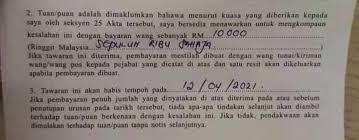 2. Tuan/puan adalah dimaklumkan bahawa menurut kuasa yang diberikan kepada
saya oleh seksyen 25 Akta tersebut, saya bersedia menawarkan untuk mengkompaun
kesalahan ini dengan bayaran wang sebanyak RM 10000
(Ringgit Malaysia SEPULUH RIBU SAHAJA)
Jika tawaran ini diterima, pembayaran mestilah dibuat dengan wang tunai/kiriman
wang/wang pos kepada pejabat yang dicatat di atas dan satu resit akan dikeluarkan
apabila pembayaran dibuat.
3. Tawaran ini akan habis tempoh pada 12/04/2021.
Jika pembayaran penuh jumlah yang dinyatakan di atas diterima pada atau sebelum
penutupan urusan pada tarikh tersebut, tiada apa-apa tindakan selanjut akan diambil
terhadap tuan/puan berkenaan dengan kesalahan ini. Jika tidak, pendakwaan akan
dimulakan terhadap tuan/puan tanpa notis selanjutnya.